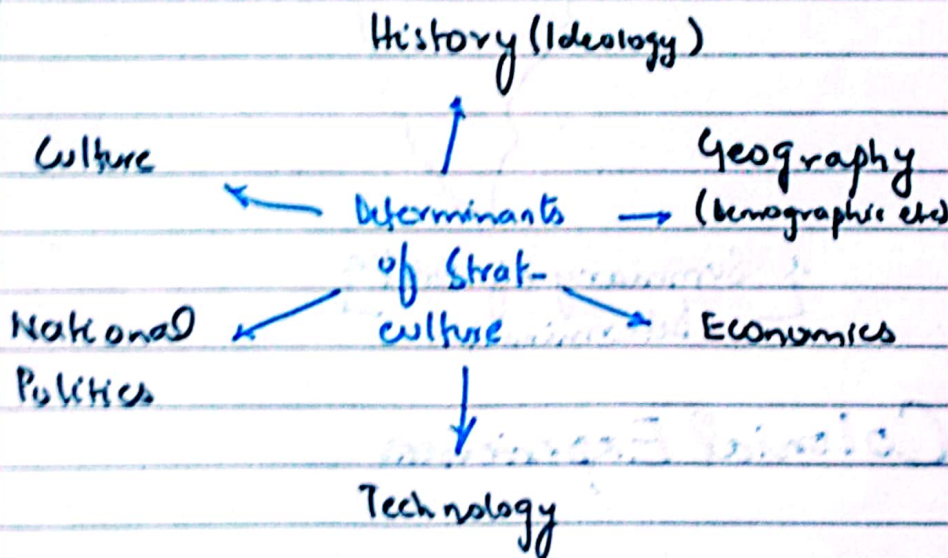 History (Ideology)
Culture
Geography
(Demographic etc)
Determinants
of Strat-
culture
National
Politics
Economics
Technology